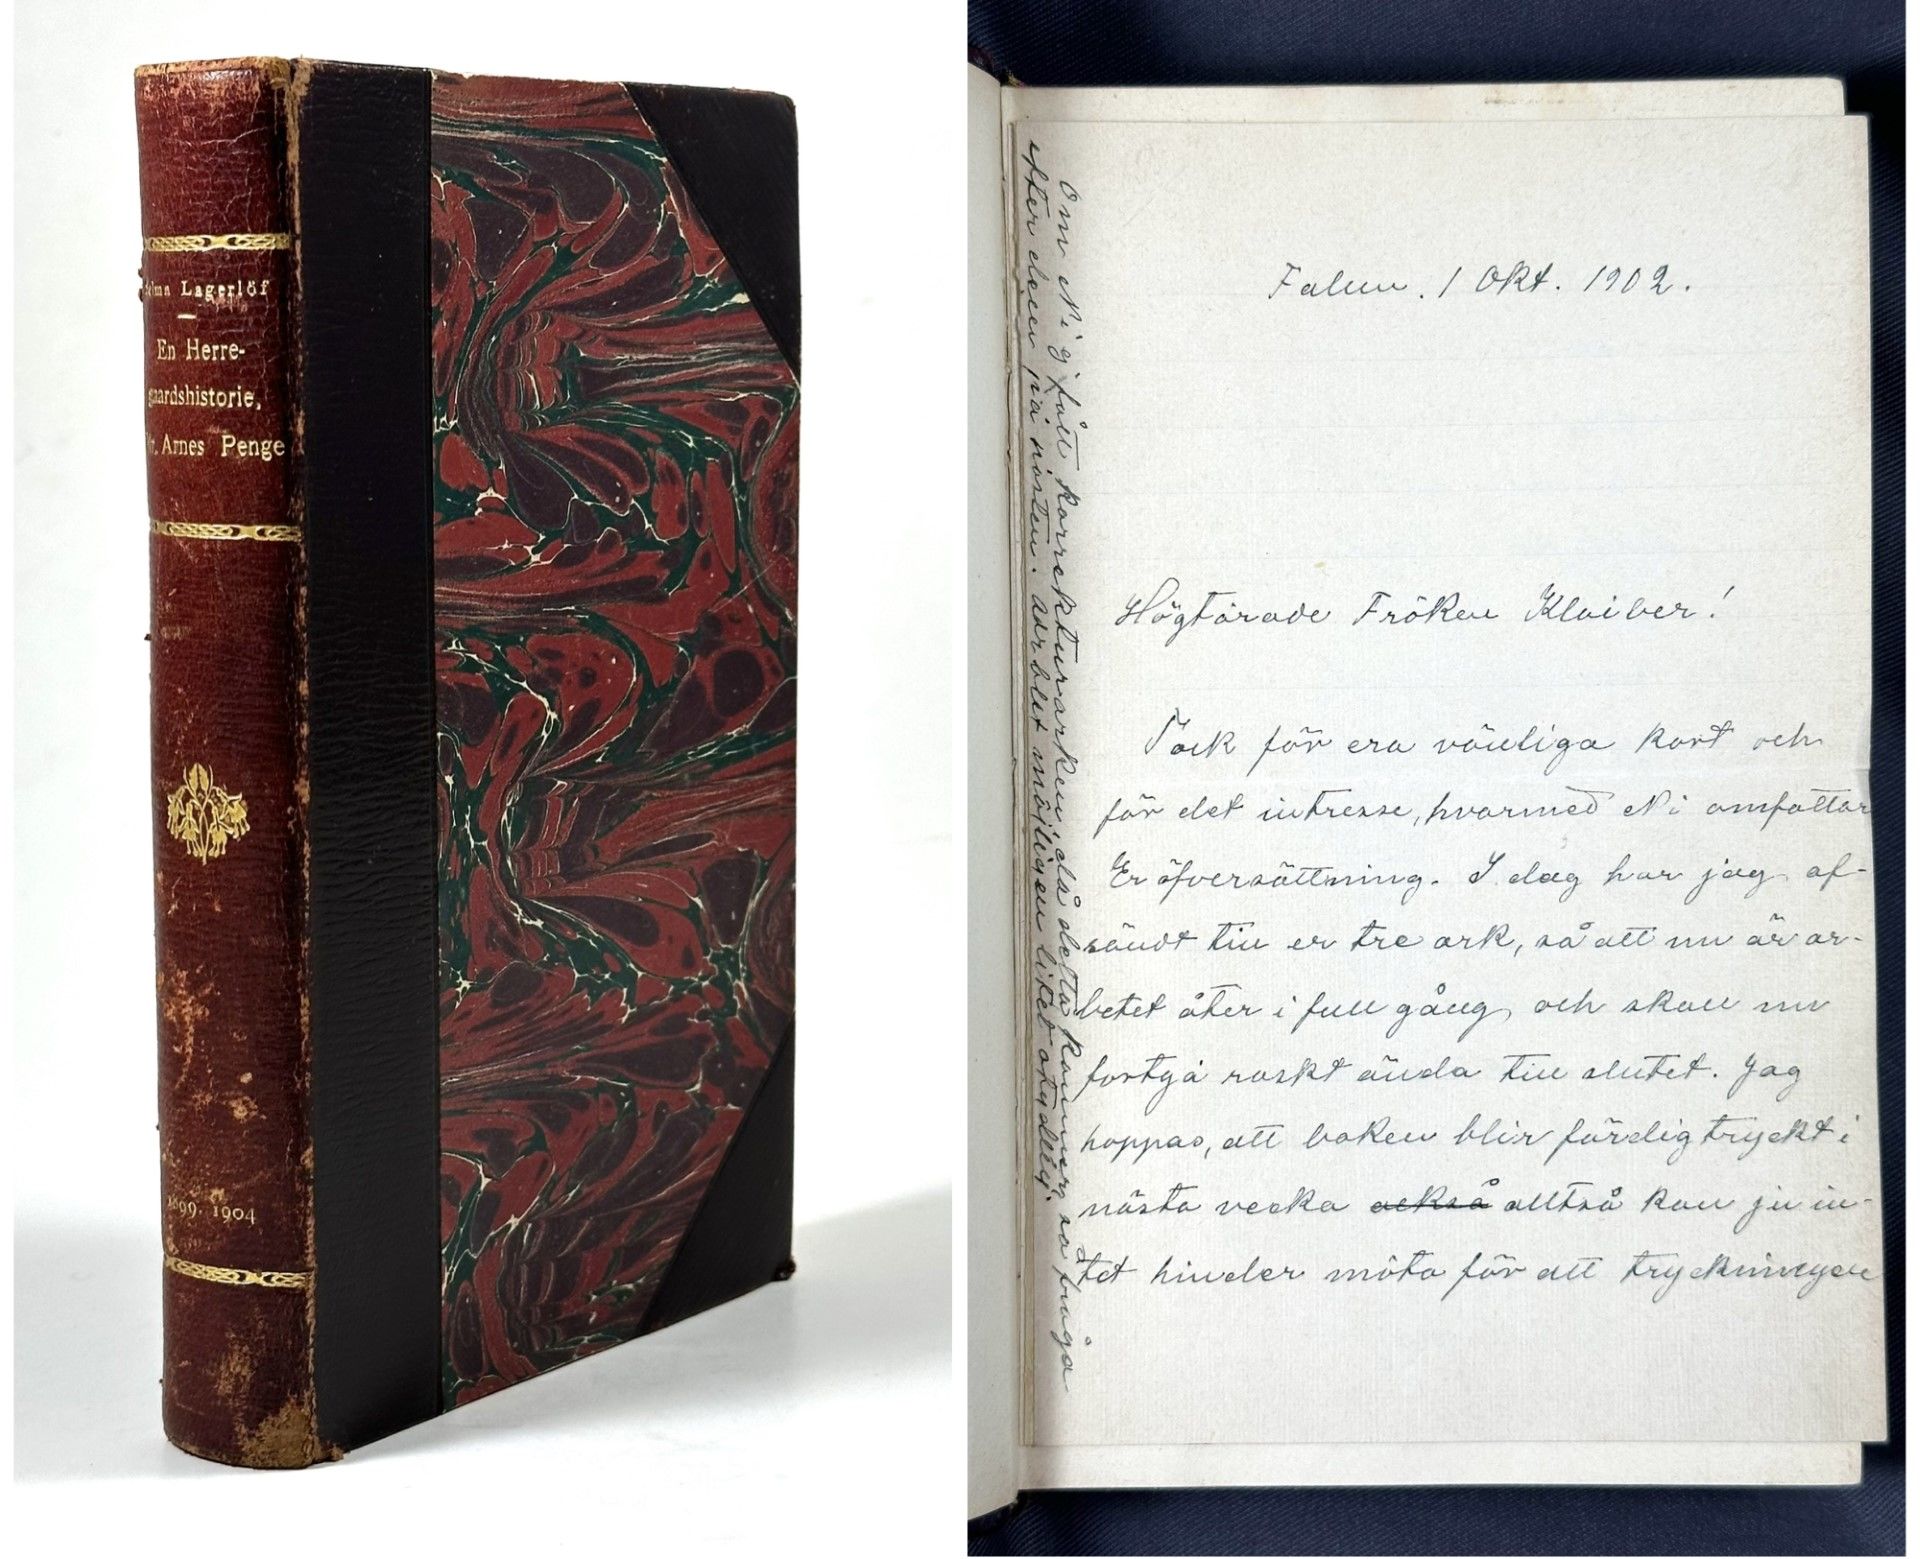 Selma Lagerlöf
En Herre-
gaardshistorie,
Hr. Arnes Penge
1899. 1904
Falun. 1 Okt. 1902.
Högtärade Fröken Klaiber!
Tack för era vänliga kort och
för det intresse, hvarmed Ni omfattar
Er öfversättning. I dag har jag af-
sändt till er tre ark, så att nu är ar-
betet åter i full gång och skall nu
fortgå raskt ända till slutet. Jag
hoppas, att boken blir färdigtryckt i
nästa vecka också alltså kan ju in-
tet hinder möta för att tryckningen
Om Ni ej fått korrekturarken, då detta kommer, så fråga
efter dem på posten. adr blef möjligen litet otydlig.